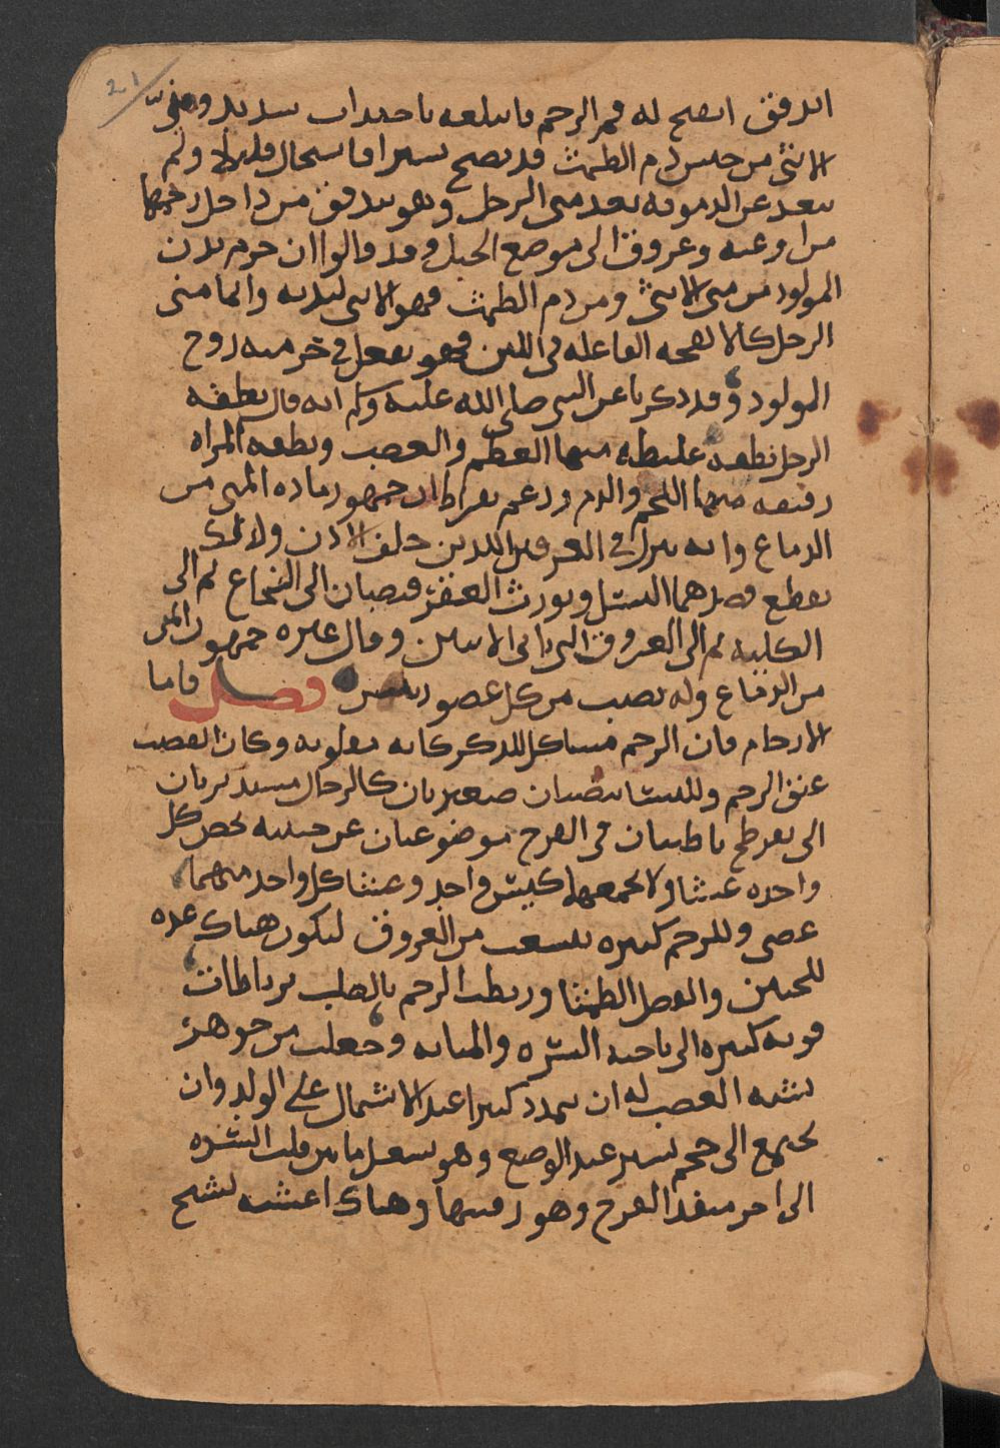 21
اندفق انفتح له فم الرحم فابتلعه باجتذاب شديد ومني
الانثى من جنس دم الطمث قد نضج يسيرا واستحال قليلا ولم
يبعد عن الدموية بعد مني الرجل وهو يندفق من داخل رحمها
من اوعية وعروق الى موضع الحبل وقد قالوا ان جرم بدن
المولود من مني الانثى ومن دم الطمث فهو الاس لبدنه وانما مني
الرجل كالانفحة الفاعلة في اللبن فهو يفعل في خرمنه روح
المولود وقد ذكرنا عن النبي صلى الله عليه وسلم انه قال نطفة
الرجل نطفة غليظة منها العظم والعصب ونطفة المراه
رقيقة منها اللحم والدم وزعم بقراط ان جمهور مادة المني من
الدماغ وانه ينزل في العرقين اللذين خلف الاذن ولذلك
يقطع فصدهما النسل ويورث العقر ويصبان الى النخاع ثم الى
الكلية ثم الى العروق التي تاتي الانثيين وقال غيره جمهور المني
من الدماغ وله نصيب من كل عضو رئيس فصل واما
الارحام فان الرحم مشاكل للذكر كانه مقلوبه وكان القضيب
عنق الرحم وللنساء بيضتان صغيرتان كالرجال مستديرتان
الى تفرطح باطنتان في الفرج موضوعتان عن جنبيه يخص كل
واحدة غشاء ولا يجمعهما كيس واحد وغشا كل واحد منهما
عصبي وللرحم كثيرة تتشعب من العروق ليكون هناك عدة
للجنين والفضل الطمثا وربطت الرحم بالصلب برباطات
قوية كثيرة الى ناحية السرة والمثانة وجعلت من جوهر
يشبه العصب له ان يتمدد كثيرا عند الاشتمال على الولد وان
يجتمع الى حجم يسير عند الوضع وهو يشغل ما بين قلب السرة
الى اخر منفذ الفرج وهو رقبتها وهناك اغشية تنتسج